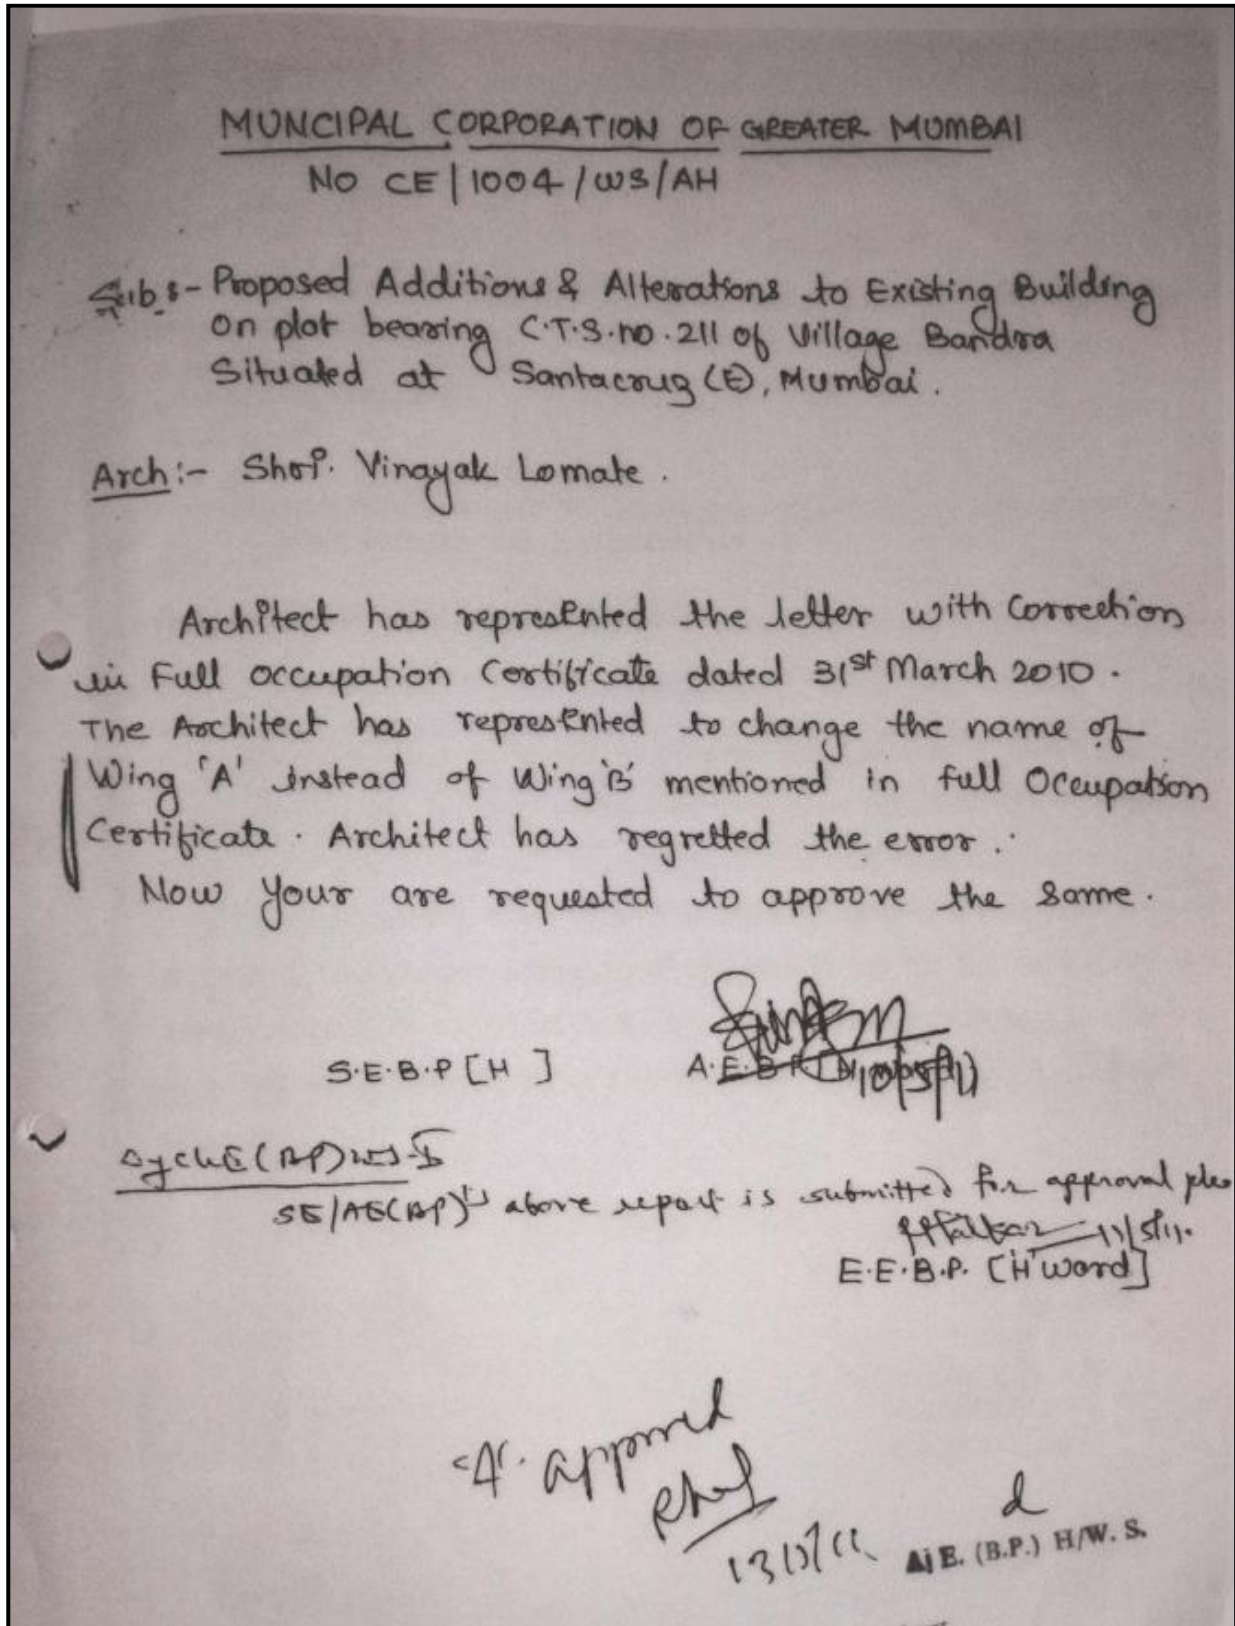 MUNCIPAL CORPORATION OF GREATER MUMBAI
NO CE/1004/WS/AH
Sub:- Proposed Additions & Alterations to Existing Building
on plot bearing C.T.S.no.211 of Village Bandra
Situated at Santacruz (E), Mumbai.
Arch:- Shri. Vinayak Lomate.
Architect has represented the letter with correction
in Full occupation Certificate dated 31st March 2010.
The Architect has represented to change the name of
Wing 'A' instead of Wing 'B' mentioned in full Occupation
Certificate. Architect has regretted the error.
Now Your are requested to approve the same.
S.E.B.P [H ]
A.E.B.P. [H
10/5/11
Dy ChE(BP)WS-I
SE/AE(BP)'s above report is submitted for approval
11/5/11.
E.E.B.P. [H ward]
'A'. approved
A.E. (B.P.) H/W. S.